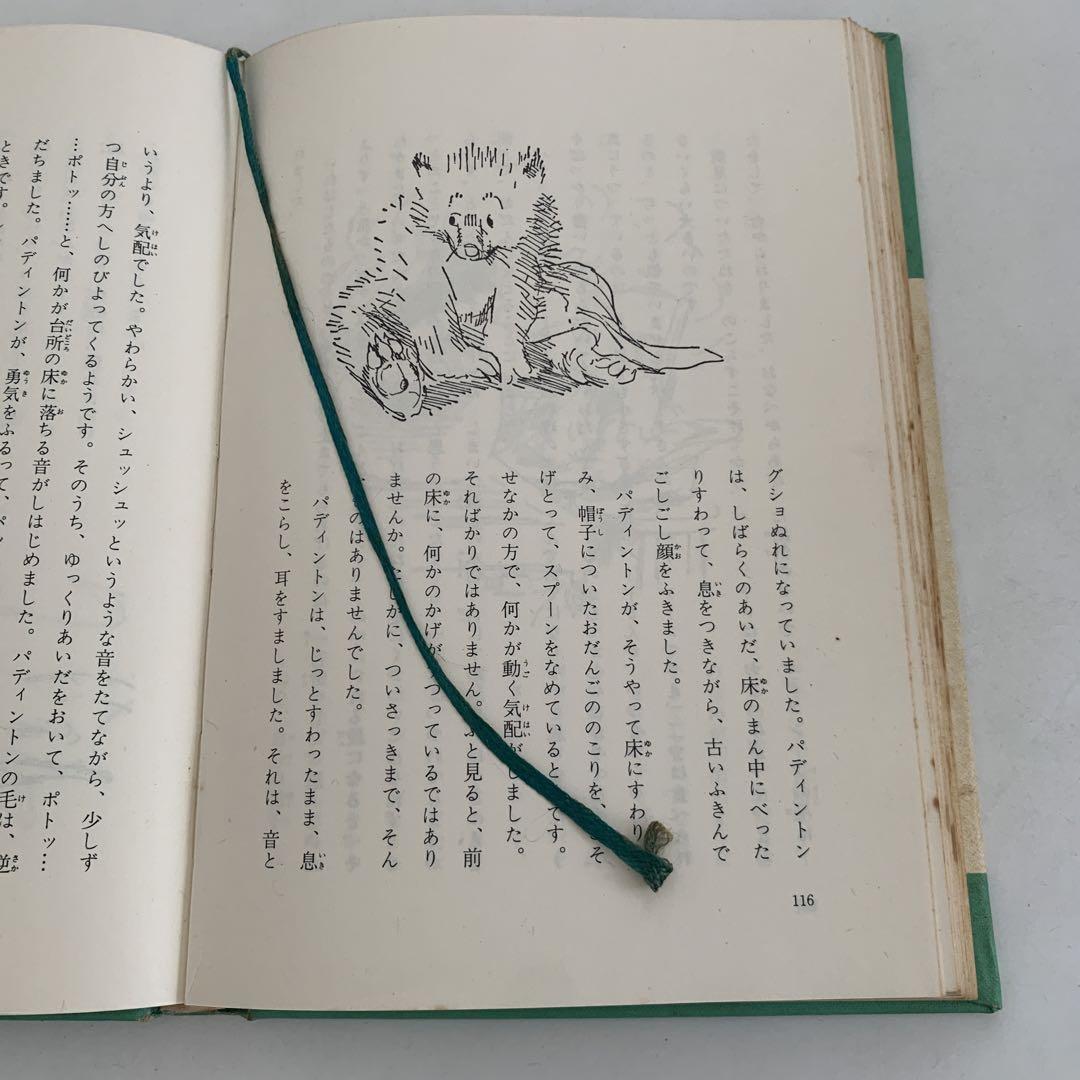 グショぬれになっていました。パディントン
は、しばらくのあいだ、床のまん中にべった
りすわって、息をつきながら、古いふきんで
ごしごし顔をふきました。
パディントンが、そうやって床にすわり
み、帽子についたおだんごののこりを、こそ
げとって、スプーンをなめているときです。
せなかの方で、何かが動く気配がしました。
そればかりではありません。ふと見ると、前
の床に、何かのかげがうつっているではあり
ませんか。たしかに、ついさっきまで、そん
ものはありませんでした。
パディントンは、じっとすわったまま、息
をこらし、耳をすましました。それは、音と
116
いうより、気配でした。やわらかい、シュッシュッというような音をたてながら、少しず
つ自分の方へしのびよってくるようです。そのうち、ゆっくりあいだをおいて、ポトッ…
…ポトッ……と、何かが台所の床に落ちる音がしはじめました。パディントンの毛は、逆
だちました。パディントンが、勇気をふるって、
ときです。